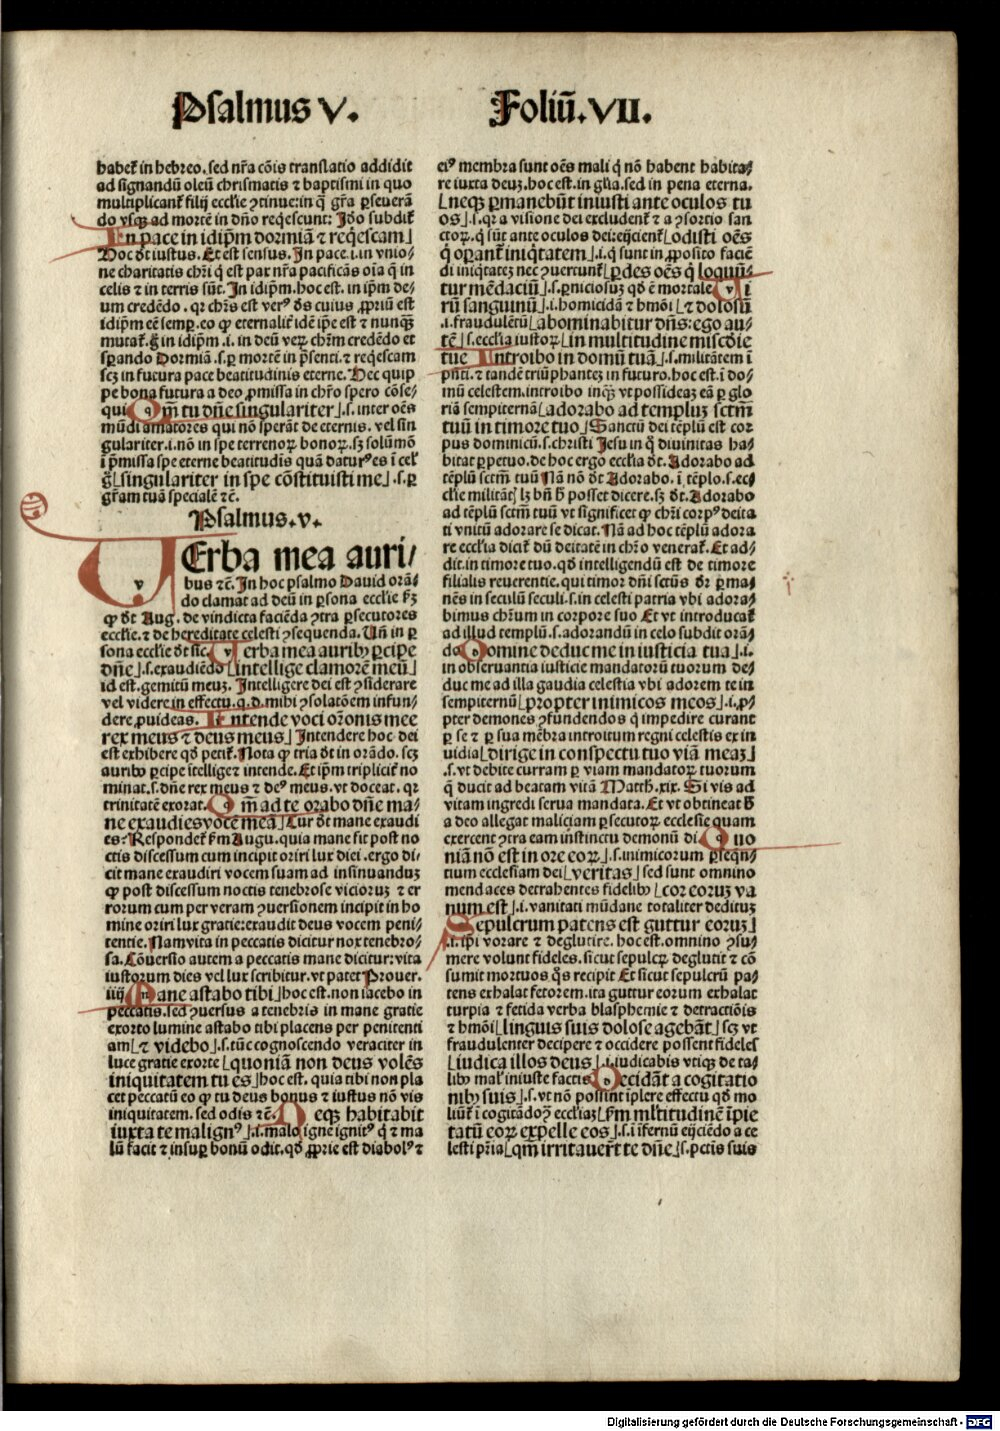 Psalmus V.
Foliū. VII.
habet̄ in hebreo. sed nr̄a cōis translatio addidit
ad signandū oleū chrismatis ⁊ baptismi in quo
multiplicant̄ filij eccl̄ie ꝯtinue: in q̄ gr̄a ꝑseuerā
do vsqꝫ ad mortē in dn̄o req̇escunt: Jdō subdit̄
In pace in idip̄m dormiā ⁊ req̇escam⌋
Hoc dt̄ iustus. Et est sensus. Jn pace .i. in vnio⸗
ne charitatis chr̄i q̇ est pax nr̄a pacificās oīa q̄ in
celis ⁊ in terris sūt. Jn idip̄m. hoc est. in ip̄m de⸗
um credēdo. qꝛ chr̄s est verꝰ ds̄ cuius ꝓpriū est
idip̄m eē semꝑ. eo ꝙ eternalit̄ idē ip̄e est ⁊ nunqꝫ
mutat̄. g̊ in idip̄m .i. in deū veꝝ chr̄m credēdo et
sꝑando Dormiā .s. ꝑ mortē in p̄senti. ⁊ req̇escam
scꝫ in futura pace beatitudinis eterne. Hec quip
pe bona futura a deo ꝓmissa in chr̄o spero cōse⸗
qui Qm̄ tu dn̄e singulariter⌋ .s. inter oēs
mūdi amatores qui nō sperāt de eternis. vel sin
gulariter .i. nō in spe terrenoꝝ bonoꝝ. sꝫ solū mō
ī p̄missa spe eterne beatitudīs quā daturꝰ es ī cel̄
g̊⌊singulariter in spe cōstituisti me⌋ .s. ꝑ
gr̄am tuā specialē ⁊c̄.
Psalmus. v.
VErba mea auri⸗
bus ⁊c̄. Jn hoc psalmo Dauid orā⸗
do clamat ad deū in ꝑsona eccl̄ie ẜꝫ
ꝙ dt̄ Aug. de vindicta faciēda ꝯtra ꝑsecutores
eccl̄ie. ⁊ de hereditate celesti ꝯsequenda. Vn̄ in ꝑ
sona eccl̄ie dt̄ sic. Verba mea auribꝰ ꝑcipe
dn̄e⌋ .s. exaudiēdo⌊intellige clamorē meū⌋
id est. gemitū meuꝫ. Jntelligere dei est ꝯsiderare
vel videre in effectu. q.d. mihi ꝯsolatōem infun⸗
dere, ꝓuideas. Intende voci or̄onis mee
rex meus ⁊ deus meus⌋ Jntendere hoc dei
est exhibere qd̄ petit̄. Nota ꝙ tria dt̄ in orādo. scꝫ
auribꝰ ꝑcipe ītellige ⁊ intende. Et ip̄m triplicit̄ no
minat .s. dn̄e rex meus ⁊ deꝰ meus. vt doceat. qꝛ
trinitatē exorat. Qm̄ ad te orabo dn̄e ma⸗
ne exaudies vocē meā⌋ Cur dt̄ mane exaudi
es: Respondet̄ ẜm Augu. quia mane fit post no
ctis discessum cum incipit oriri lux diei. ergo di⸗
cit mane exaudiri vocem suam ad insinuanduꝫ
ꝙ post discessum noctis tenebrose vicioruꝫ ⁊ er
rorum cum per veram ꝯuersionem incipit in ho
mine oriri lux gratie: exaudit deus vocem peni⸗
tentie. Nam vita in peccatis dicitur nox tenebro⸗
sa. Cōuersio autem a peccatis mane dicitur: vita
iustorum dies vel lux scribitur. vt patet Prouer.
iiij Mane astabo tibi⌋ hoc est. non iacebo in
peccatis. sed ꝯuersus a tenebris in mane gratie
exorto lumine astabo tibi placens per penitenti
am⌊⁊ videbo⌋ .s. tūc cognoscendo veraciter in
luce gratie exorte⌊quoniam non deus volēs
iniquitatem tu es⌋ hoc est. quia tibi non pla
cet peccatū eo ꝙ tu deus bonus ⁊ iustus nō vis
iniquitatem. sed odis ⁊c̄. Neqꝫ habitabit
iuxta te malignꝰ⌋ .i. malo igne ignitꝰ q̇ ⁊ ma
lū facit ⁊ insuꝑ bonū odit. qd̄ ꝓprie est diabolꝰ ⁊
eiꝰ membra sunt oēs mali q̇ nō habent habita⸗
re iuxta deuꝫ. hoc est. in gl̄ia. sed in pena eterna.
⌊neqꝫ ꝑmanebūt iniusti ante oculos tu
os⌋ .s. qꝛ a visione dei excludent̄ ⁊ a ꝯsortio san
ctoꝝ. q̇ sūt ante oculos dei: eijcient̄⌊odisti oēs
q̇ oꝑant̄ iniq̇tatem⌋ .i. q̇ sunt in ꝓposito faciē
di iniq̇tateꝫ nec ꝯuertunt̄⌊ꝑdes oēs q̇ loquū⸗
tur mēdaciū⌋ .s. ꝑniciosuꝫ qd̄ ē mortale Vi
rū sanguinū⌋ .i. homicidā ⁊ hmōi⌊⁊ dolosū
.i. fraudulētū⌊abominabitur dn̄s: ego au⸗
tē⌋ .s. eccl̄ia iustoꝝ⌊in multitudine misc̄die
tue Introibo in domū tuā⌋ .s. militātem ī
pn̄ti. ⁊ tandē triūphanteꝫ in futuro. hoc est. ī do⸗
mū celestem. introibo inqꝫ vt possideaꝫ eā ꝑ glo
riā sempiternā⌊adorabo ad templuꝫ sctm̄
tuū in timore tuo⌋ Sanctū dei tēplū est cor
pus dominicū .s. christi Jesu in q̊ diuinitas ha⸗
bitat ꝑpetuo. de hoc ergo eccl̄ia dt̄. Adorabo ad
tēplū sctm̄ tuū Nā nō dt̄ Adorabo. ī tēplo .s. ec⸗
cl̄ie militāt̄ lꝫ bn̄ h̄ posset dicere. sꝫ dt̄. Adorabo
ad tēplū sctm̄ tuū vt significet ꝙ chr̄i corpꝰ deita
ti vnitū adorare se dicat. Nā ad hoc tēplū adora
re eccl̄ia dicit̄ dū deitatē in chr̄o venerat̄. Et ad⸗
dit. in timore tuo. qd̄ intelligendū est de timore
filialis reuerentie. qui timor dn̄i sctūs dr̄ ꝑma⸗
nēs in seculū seculi .s. in celesti patria vbi adora⸗
bimus chr̄um in corpore suo Et vt introducat̄
ad illud templū .s. adorandū in celo subdit orā⸗
do Domine deduc me in iusticia tua⌋ .i.
in obseruantia iusticie mandatorū tuorum de⸗
duc me ad illa gaudia celestia vbi adorem te in
sempiternū⌊propter inimicos meos⌋ .i. ꝓ⸗
pter demones ꝯfundendos q̇ impedire curant
ꝑ se ⁊ ꝑ sua mēbra introitum regni celestis ex in
uidia⌊dirige in conspectu tuo viā meaꝫ⌋
.s. vt debite curram ꝑ viam mandatoꝝ tuorum
q̄ ducit ad beatam vitā Matth. xix. Si vis ad
vitam ingredi serua mandata. Et vt obtineat h̄
a deo allegat maliciam ꝑsecutoꝝ ecclesie quam
exercent ꝯtra eam instinctu demonū di. Quo
niā nō est in ore eoꝝ⌋ .s. inimicorum ꝑseq̄n⸗
tium ecclesiam dei⌊veritas⌋ sed sunt omnino
mendaces detrahentes fidelibꝰ⌊cor eoruꝫ va
num est⌋ .i. vanitati mūdane totaliter dedituꝫ
Sepulcrum patens est guttur eoruꝫ⌋
.i. ip̄i vorare ⁊ deglutire. hoc est. omnino ꝯsu⸗
mere volunt fideles. sicut sepulcꝝ deglutit ⁊ cō
sumit mortuos q̊s recipit Et sicut sepulcrū pa⸗
tens exhalat fetorem. ita guttur eorum exhalat
turpia ⁊ fetida verba blasphemie ⁊ detractiōis
⁊ hmōi⌊linguis suis dolose agebāt⌋ scꝫ vt
fraudulenter decipere ⁊ occidere possent fideles
⌊iudica illos deus⌋ .i. iudicabis vtiqꝫ de ta⸗
libꝰ mal̄ iniuste factis Decidāt a cogitatio
nibꝰ suis⌋ .s. vt nō possint īplere effectu qd̄ mo
liūt̄ ī cogitādo ꝯtra eccl̄iaꝫ⌊ẜm ml̄titudinē īpie
tatū eoꝝ expelle eos⌋ .s. ī īfernū eijciēdo a ce
lesti pr̄ia⌊qm̄ irritauert̄ te dn̄e⌋ .s. pctīs suis
Digitalisierung gefördert durch die Deutsche Forschungsgemeinschaft - DFG